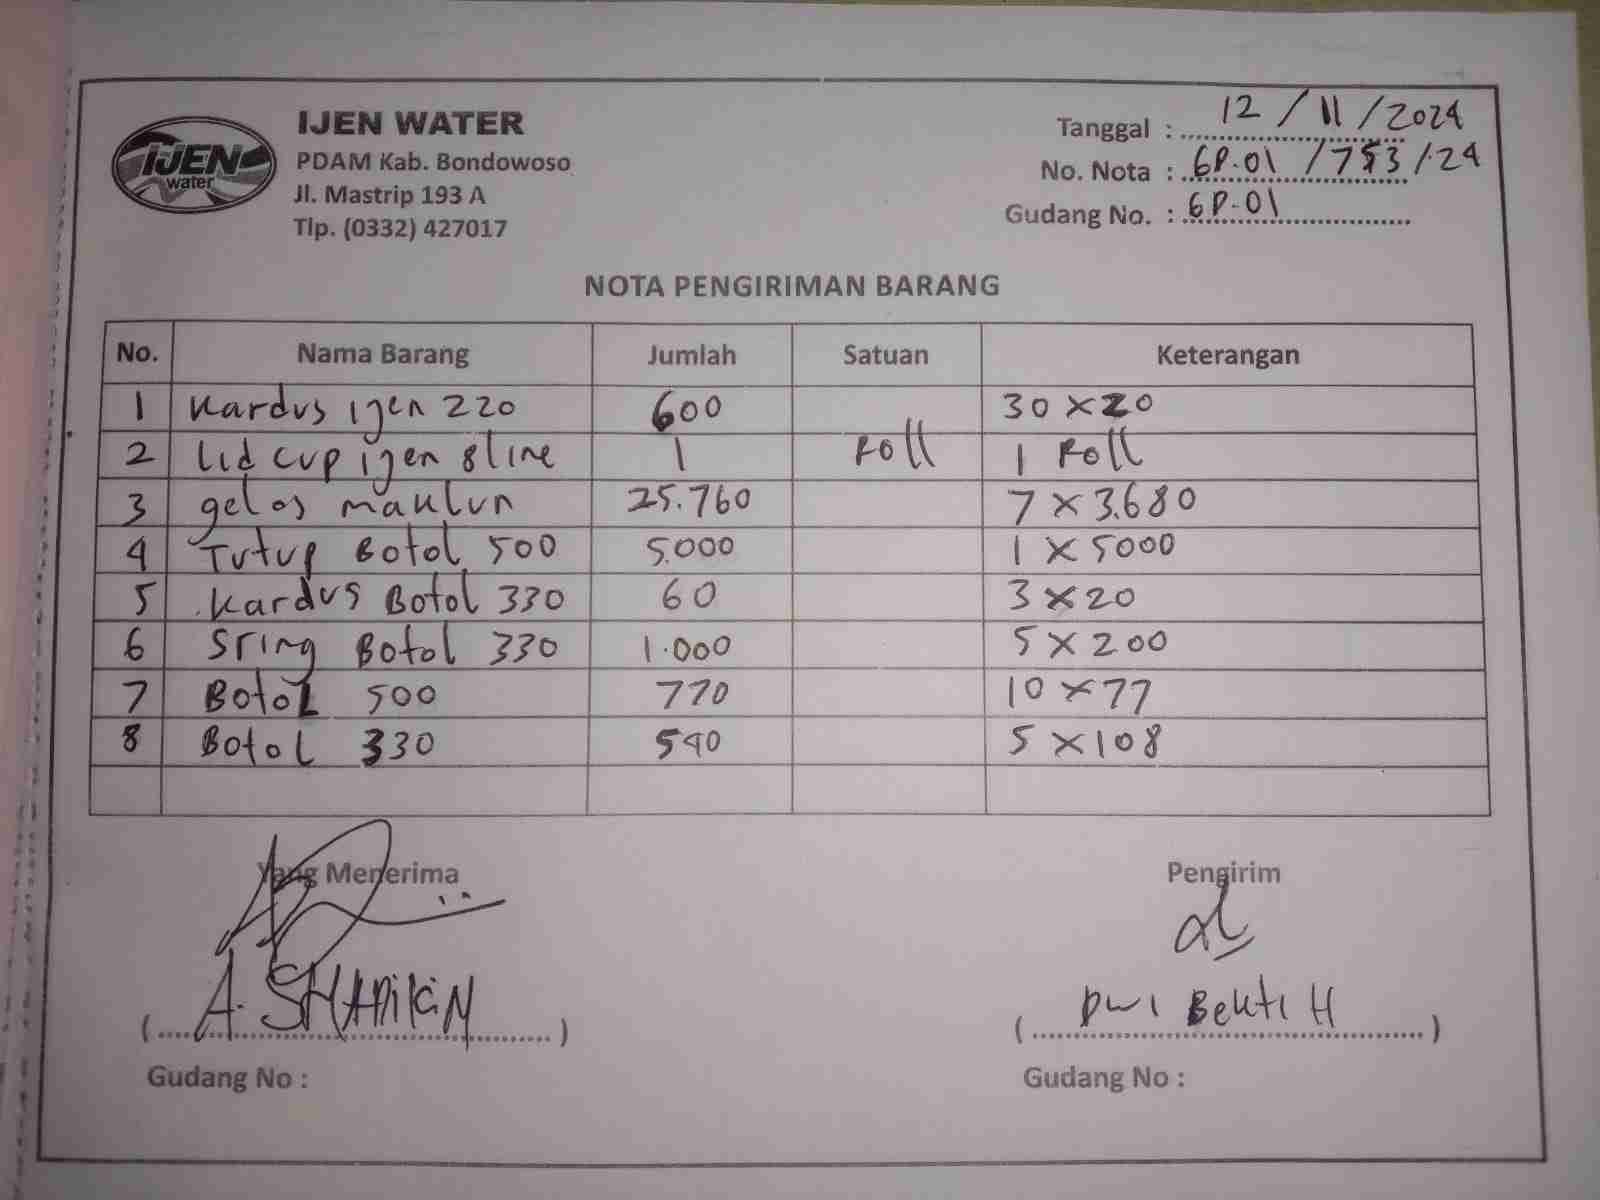 IJEN water
IJEN WATER
PDAM Kab. Bondowoso
Jl. Mastrip 193 A
Tlp. (0332) 427017
Tanggal : 12 / 11 / 2024
No. Nota : GP.01 / 753 / 24
Gudang No. : GP.01
NOTA PENGIRIMAN BARANG
No. Nama Barang Jumlah Satuan Keterangan
1 Kardus ijen 220 600 30 x 20
2 Lid cup ijen 8 line 1 Roll 1 Roll
3 gelas maklun 25.760 7 x 3.680
4 Tutup Botol 500 5.000 1 x 5000
5 Kardus Botol 330 60 3 x 20
6 Sring Botol 330 1.000 5 x 200
7 Botol 500 770 10 x 77
8 Botol 330 540 5 x 108
Yang Menerima Pengirim
( A. SHADIKIN ) ( Dwi Bekti H )
Gudang No : Gudang No :